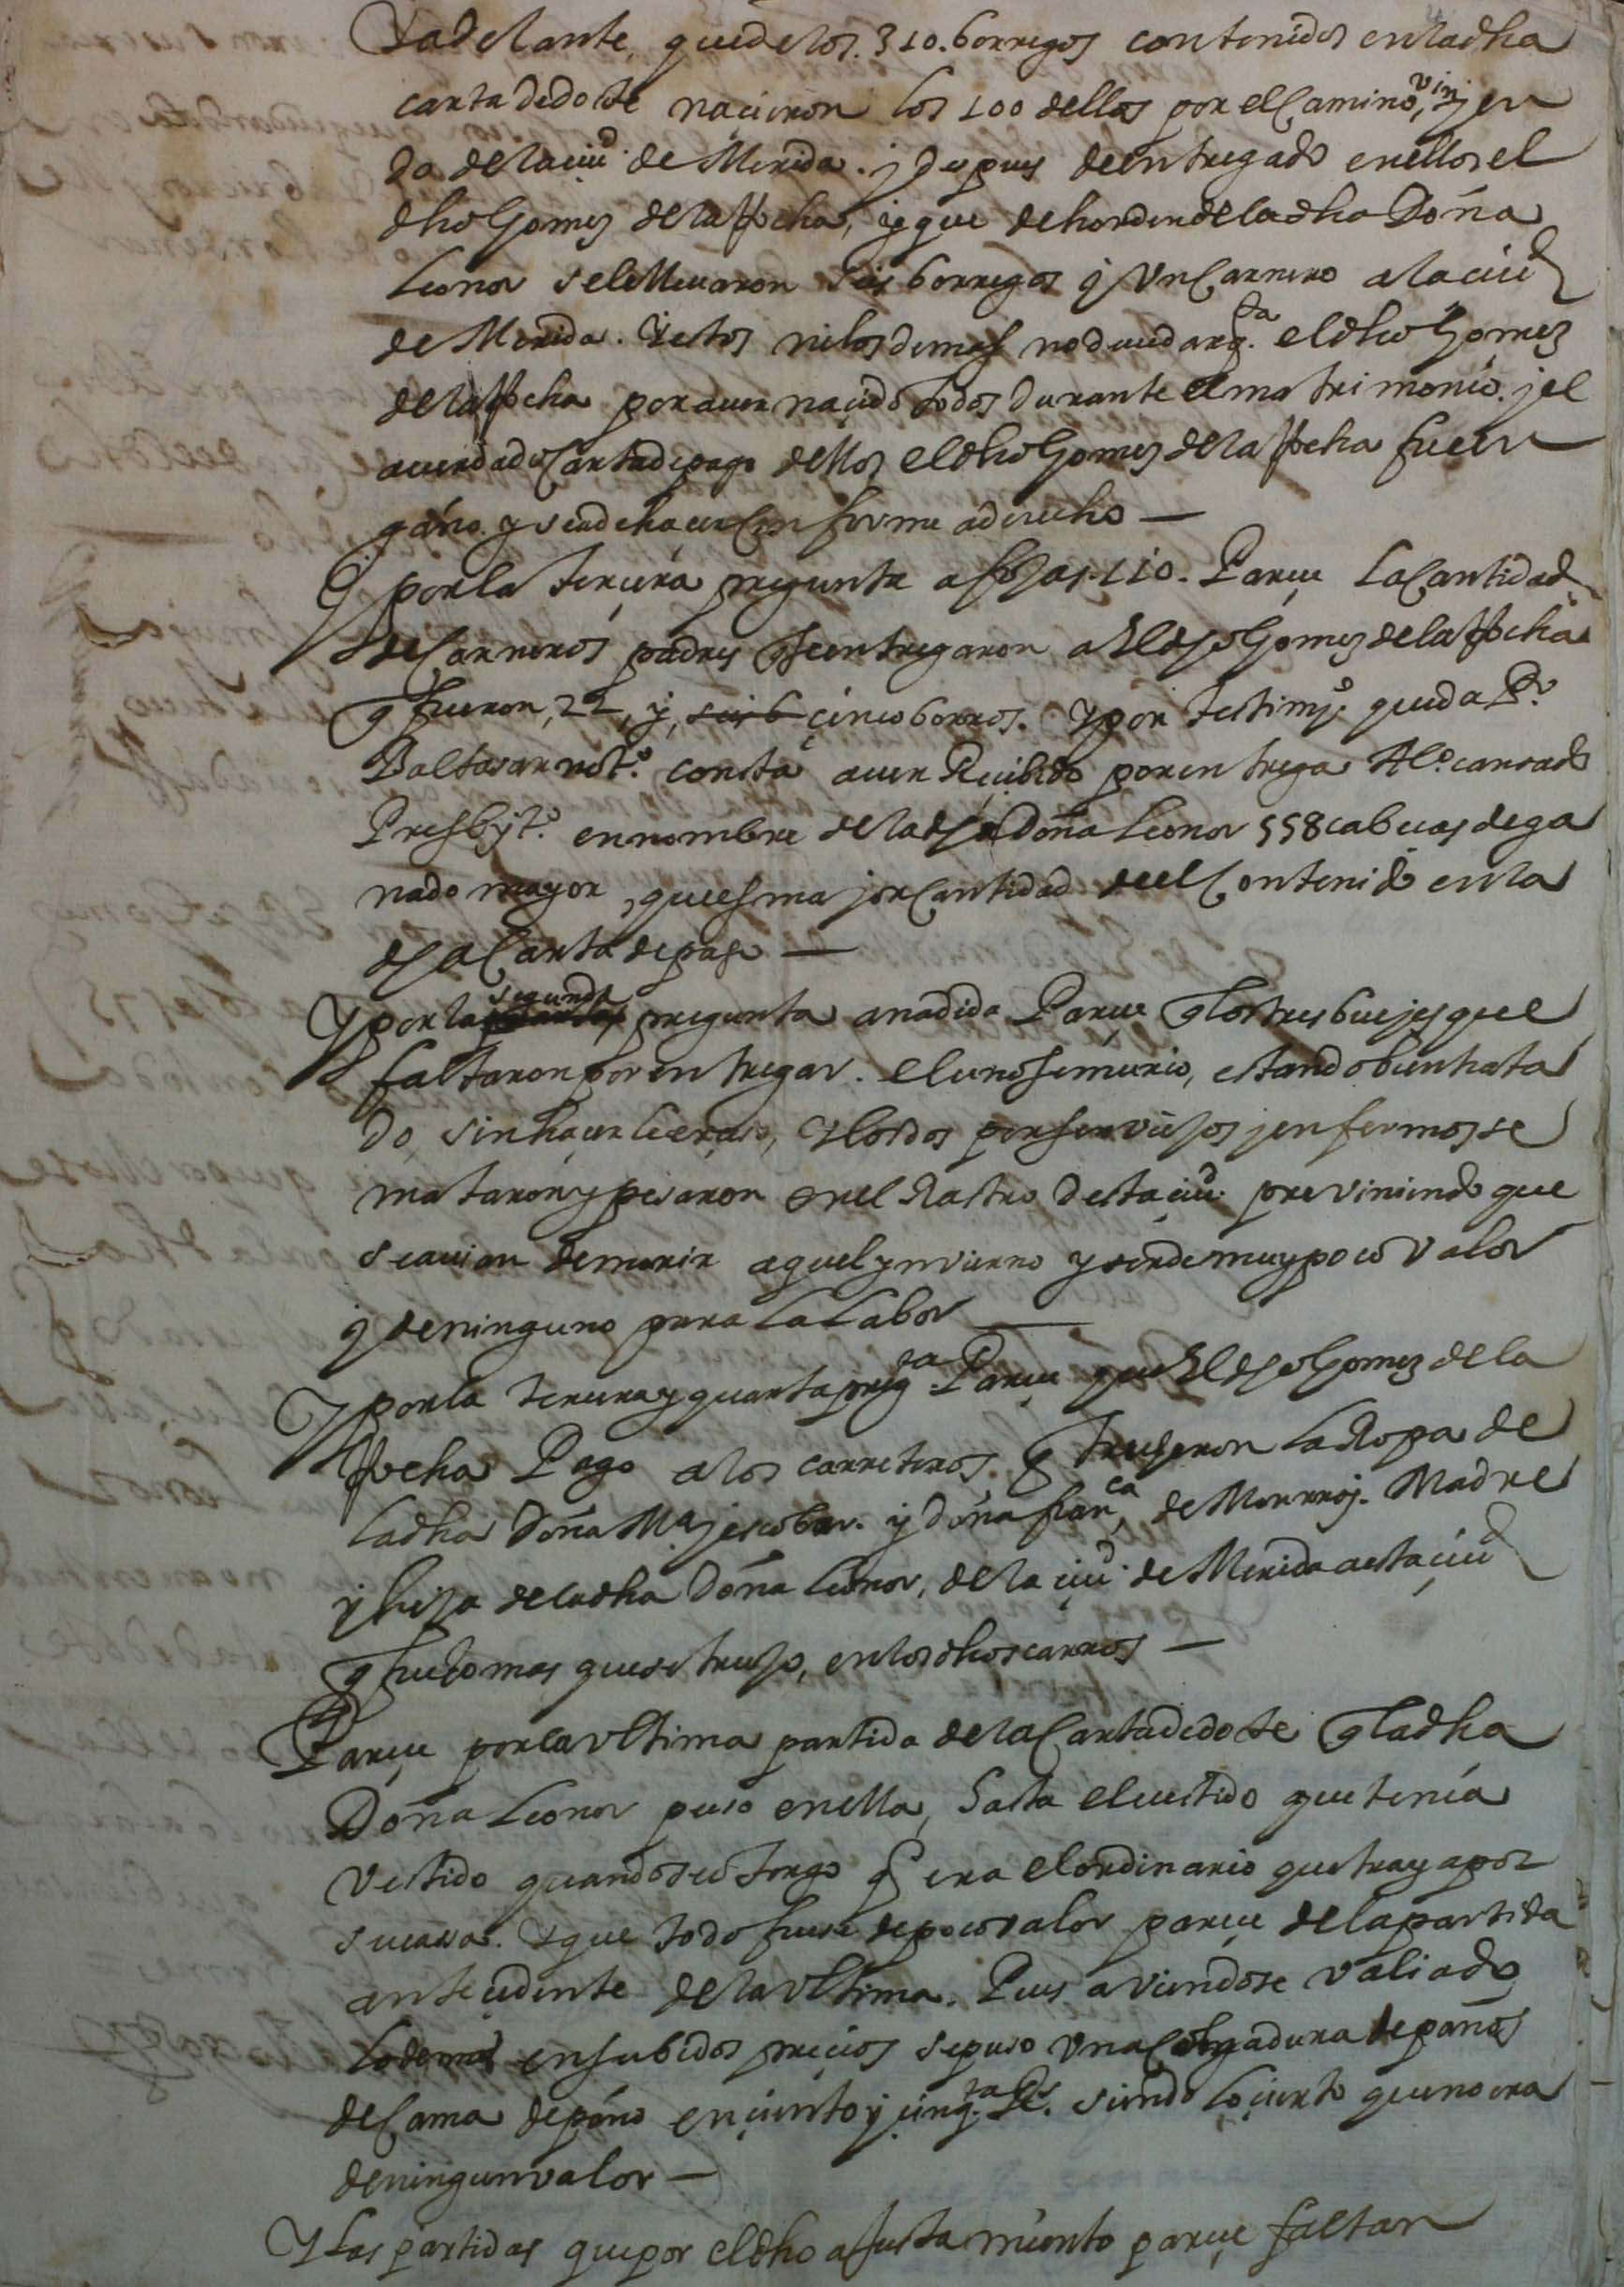 Y adelante, que de los. 310. borregos contenidos en la dha
carta de dote nacieron los 100 dellos por el camino, vinien
do de la ciud. de Merida. y despues de entregado en ellos el
dho Gomez de la Rocha, y que de horden de la dha Doña
Leonor se le lleuaron seis borregos y Un Carnero a la ciud
de Merida. Y estos ni los demas no deuda arga. el dho Gomez
de la Rocha por auer naçido todos durante el matrimonio. y el
auer dado Carta de pago dellos el dho Gomez de la Rocha fue en
gaño. y se a de hacer Conforme a derecho —
Y por la terçera pregunta a fojas. 110. Pareçe La Cantidad
de Carneros padres q se entregaron a El dho Gomez de la Rocha
q fueron, 22, y, seis b çinco borros. Y por testimo. que da Po.
Baltasar noto. consta auer Reçibido por entrega Alo. cansado
Presbyto. en nombre de la dha Doña Leonor 558 cabeças de ga
nado mayor, que es mayor Cantidad de el Contenido en la
dha Carta de pago —
Y por la segunda pregunta añadida Pareçe q los tres bueyes que
faltaron por entregar. el uno se murio, estando bien trata
do, sin haçerle eraso, Y los dos por ser viejos y enfermos se
mataron y pesaron en el Rastro desta çiud. previniendo que
se auian de morir aquel ynvierno y ser de muy poco valor
y de ninguno para La Labor —
Y por la tercera y quarta prega. Pareçe que El dho Gomez de la
Rocha Pago a los carreteros q trugeron La Ropa de
La dha Doña Ma. y escobar. y Doña franca, de Monrroy. Madre
y hija de la dha Doña Leonor, de la çiud. de Merida a esta çiud
q fue lo mas que se trujo, en los dhos carros —
Pareçe por la ultima partida de la Carta de dote q la dha
Doña Leonor puso en ella, hasta el uestido que tenía
Vestido quando se otorgo q era el ordinario que traya por
su casa. Y que todo fuese de poco valor pareçe de la partida
anteçedente de la ultima. Pues aviendose valiado
Lo demas en subidos precios se puso Una Colgadura de paños
de Cama de paño en çiento y çinqta. Rs. siendo Lo çierto que no era
de ningun valor —
Y Las partidas que por el dho ajustamiento pareçe faltar